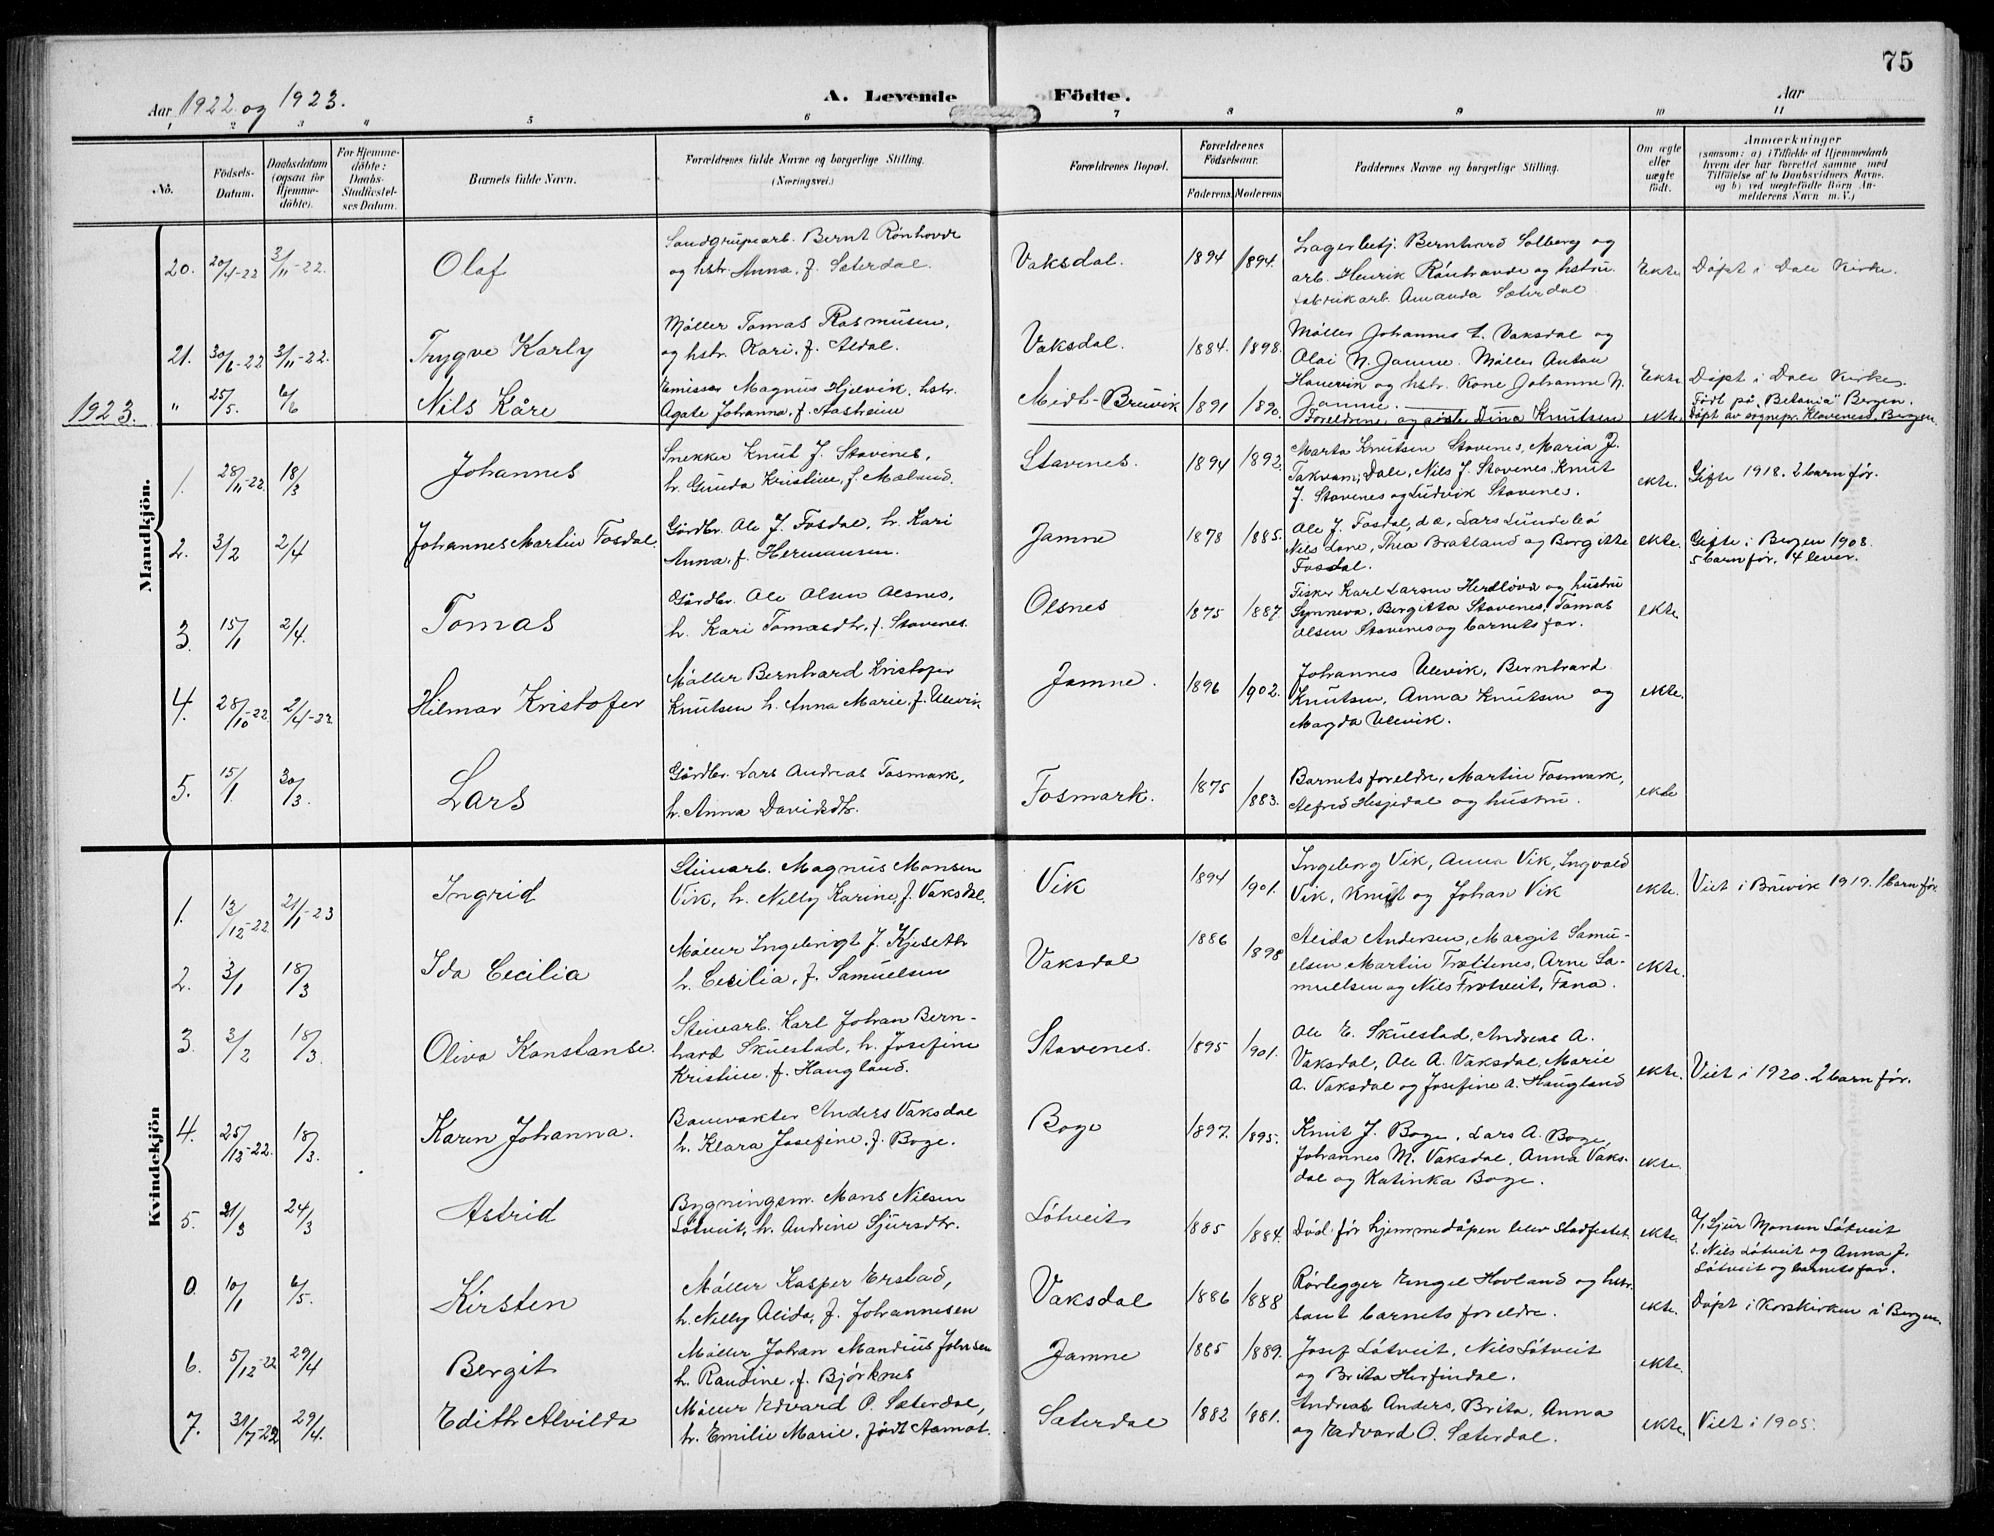 75
Aar 1922 og 1923.
A. Levende
Födte.
Aar
1 2 3 4 5 6 7 8 9 10 11
No.
Födsels-
Datum.
Daabsdatum
(ogsaa for
Hjemme-
döbte).
For Hjemme-
döbte:
Daabs-
Stadfæstel-
ses Datum.
Barnets fulde Navn.
Forældrenes fulde Navne og borgerlige Stilling.
(Næringsvei.)
Forældrenes Bopæl.
Forældrenes
Födselsaar.
Faderens
Moderens
Faddernes Navne og borgerlige Stilling.
Om ægte
eller
uægte
födt.
Anmærkninger
(saasom: a) i Tilfælde af Hjemmedaab
hvem der har forrettet samme, med
Tilföielse af to Daabsvidners Navne.
og b) ved uægtefödte Börn An-
melderens Navn m. V.)
Mandkjön.
20. 20/4-22 3/11-22. Olaf
Sandgrupearb. Bernt Rønhovde
og hstr. Anna, f. Sæterdal.
Vaksdal. 1894 1894.
Lagerbetj. Bernhard Solberg og
arb. Henrik Rønhovde og hstru
fabrikarb. Amanda Sæterdal
Ekte Døpt i Dale Kirke.
21. 30/6-22 3/11-22. Trygve Karly
Møller Tomas Rasmusen,
og hstr. Kari, f. Aldal.
Vaksdal. 1884. 1898.
Møller Johannes L. Vaksdal og
Olai N. Jamne. Møller Anton
Hanevik og hstr. Kone Johanne N.
Jamne.
Ekte Døpt i Dale Kirke.
1923.
" 25/5. 6/6 Nils Kåre
Emissær Magnus Hjelvik, hstr.
Agate Johanna, f. Aasheim
Midt-Bruvik 1891 1890.
Foreldrene og søst. Dina Knutsen
ekte. Født på "Betania" Bergen.
Døpt av sognepr. Klaveness, Bergen.
1. 28/11-22. 18/3 Johannes
Snekker Knut J. Stavenes,
h. Gunda Kristine, f. Mæland.
Stavenes. 1894 1892.
Marta Knutsen Stavenes, Maria J.
Takvam, Dale, Nils J. Stavenes, Knut
J. Stavenes og Ludvik Stavenes.
ekte. Gifte 1918. 2 barn før.
2. 3/2 2/4 Johannes Martin Fosdal.
Gårdbr. Ole J. Fosdal, h. Kari
Anna, f. Hermansen.
Jamne 1878 1885.
Ole J. Fosdal, d.e., Lars Lundeba
Nils Lone, Thea Bratland og Borgitte
Fosdal.
ekte. Gifte i Bergen 1908.
5 barn før. 4 lever.
3. 15/1 2/4. Tomas
Gårdbr. Ole Olsen Olsnes,
h. Kari Tomasdtr. f. Stavenes.
Olsnes 1875 1887.
Fisker Karl Larsen Herdløva og hustru
Synneva, Bergitta Stavenes, Tomas
Olsen Stavenes og barnets far.
ekte
4. 28/10-22. 2/4-22. Hilmar Kristofer
Møller Bernhard Kristofer
Knutsen h. Anna Marie, f. Ulevik
Jamne. 1896 1902.
Johannes Ulevik, Bernhard
Knutsen, Anna Knutsen og
Magda Ulevik.
ekte.
5. 15/1. 30/3. Lars
Gårdbr. Lars Andreas Fosmark,
h. Anna Davidsdtr.
Fosmark. 1875 1883.
Barnets foreldre, Martin Fosmark,
Alfred Hesjedal og hustru.
ekte
Kvindekjön
1. 13/12-22. 21/1-23 Ingrid
Steinarb. Magnus Monsen
Vik, h. Nelly Karine, f. Vaksdal.
Vik 1894 1901.
Ingeborg Vik, Anna Vik, Ingvald
Vik, Knut og Johan Vik
ekte. Viet i Bruvik 1919. 1 barn før
2. 3/1 18/3 Ida Cecilia
Møller Ingebrigt J. Kjeseth
h. Cecilia, f. Samuelsen
Vaksdal 1886 1898
Alida Andersen, Margit Samu-
elsen, Martin Trættenes, Arne Sa-
muelsen og Nils Frotveit, Fana.
ekte.
3. 3/2 18/3. Oliva Konstanse.
Steinarb. Karl Johan Bern-
hard Skulstad, h. Josefine
Kristine, f. Haugland.
Stavenes. 1895 1901.
Ole E. Skulstad, Andreas A.
Vaksdal, Ole A. Vaksdal, Marie
A. Vaksdal og Josefine A. Haugland
ekte. Viet i 1920. 2 barn før.
4. 25/12-22. 18/3. Karen Johanna.
Banevakter Anders Vaksdal
h. Klara Josefine, f. Boge.
Boge 1897. 1895.
Knut J. Boge, Lars A. Boge,
Johannes M. Vaksdal, Anna Vaks-
dal og Katinka Boge.
ekte.
5. 21/3 24/3 Astrid
Bygningsm. Mons Nilsen
Løtveit, h. Andrine Sjursdtr.
Løtveit 1885 1884.
Død før hjemmedåpen blev stadfestet.
ekte. a/1 Sjur Monsen Løtveit
2. Nils Løtveit og Anna J.
Løtveit og barnets far.
0. 10/1 6/5. Kirsten
Møller Kasper Erstad,
h. Nelly Alida, f. Johannesen
Vaksdal 1886 1888
Rørlegger Engel Hovland og hstr.
samt barnets foreldre.
ekte. Døpt i Korskirken i Bergen.
6. 5/12-22 29/4 Bergit
Møller Johan Mandius Johnsen
h. Randine, f. Bjørknes
Jamne 1885 1889.
Josef Løtveit, Nils Løtveit
og Brita Herfindal.
ekte.
7. 31/7-22 29/4. Edith Alvilda
Møller Edvard O. Sæterdal,
h. Emilie Marie, født Aamot.
Sæterdal 1882 1881.
Andreas Anders, Brita, Anna
og Edvard O. Sæterdal.
ekte. Viet i 1905.